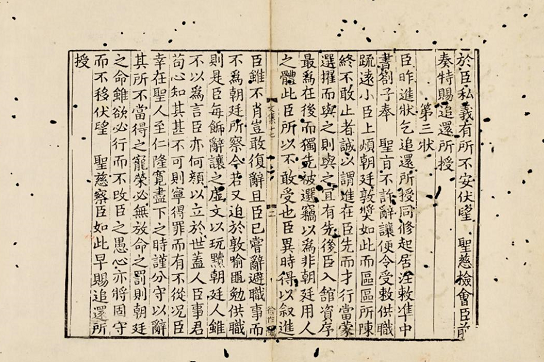 於臣私義有所不安伏望　聖慈檢會臣前
奏特賜追還所授
第三狀
臣昨進狀乞追還所授同修起居注敕進中
書劄子奉　聖旨不許辭讓便令受敕供職
疏遠小臣上煩朝廷敦獎如此而區區所陳
終不敢止者誠以謂進在臣先而才行當蒙
選擢而與之則與之宜有先後臣入館資序
最為在後而獨先被選竊以為非朝廷用人
之體此臣所以不敢受也臣異時得以叙進
臣雖不肖豈敢復辭且臣已嘗辭避職事而
不為朝廷所察令若又迫於敦喻僶勉供職
則是臣每飾辭讓之虛文以玩黷朝廷人雖
不以為言臣亦何顏以立於世蓋人臣事君
苟心知其甚不可則寧得罪而有不從況臣
幸在聖人至仁隆寬盡下之時謹分守以辭
其所不當得之寵榮必無放命之罰則朝廷
之命雖欲必行而不改臣之愚心亦將固守
而不移伏望　聖慈察臣如此早賜追還所
授